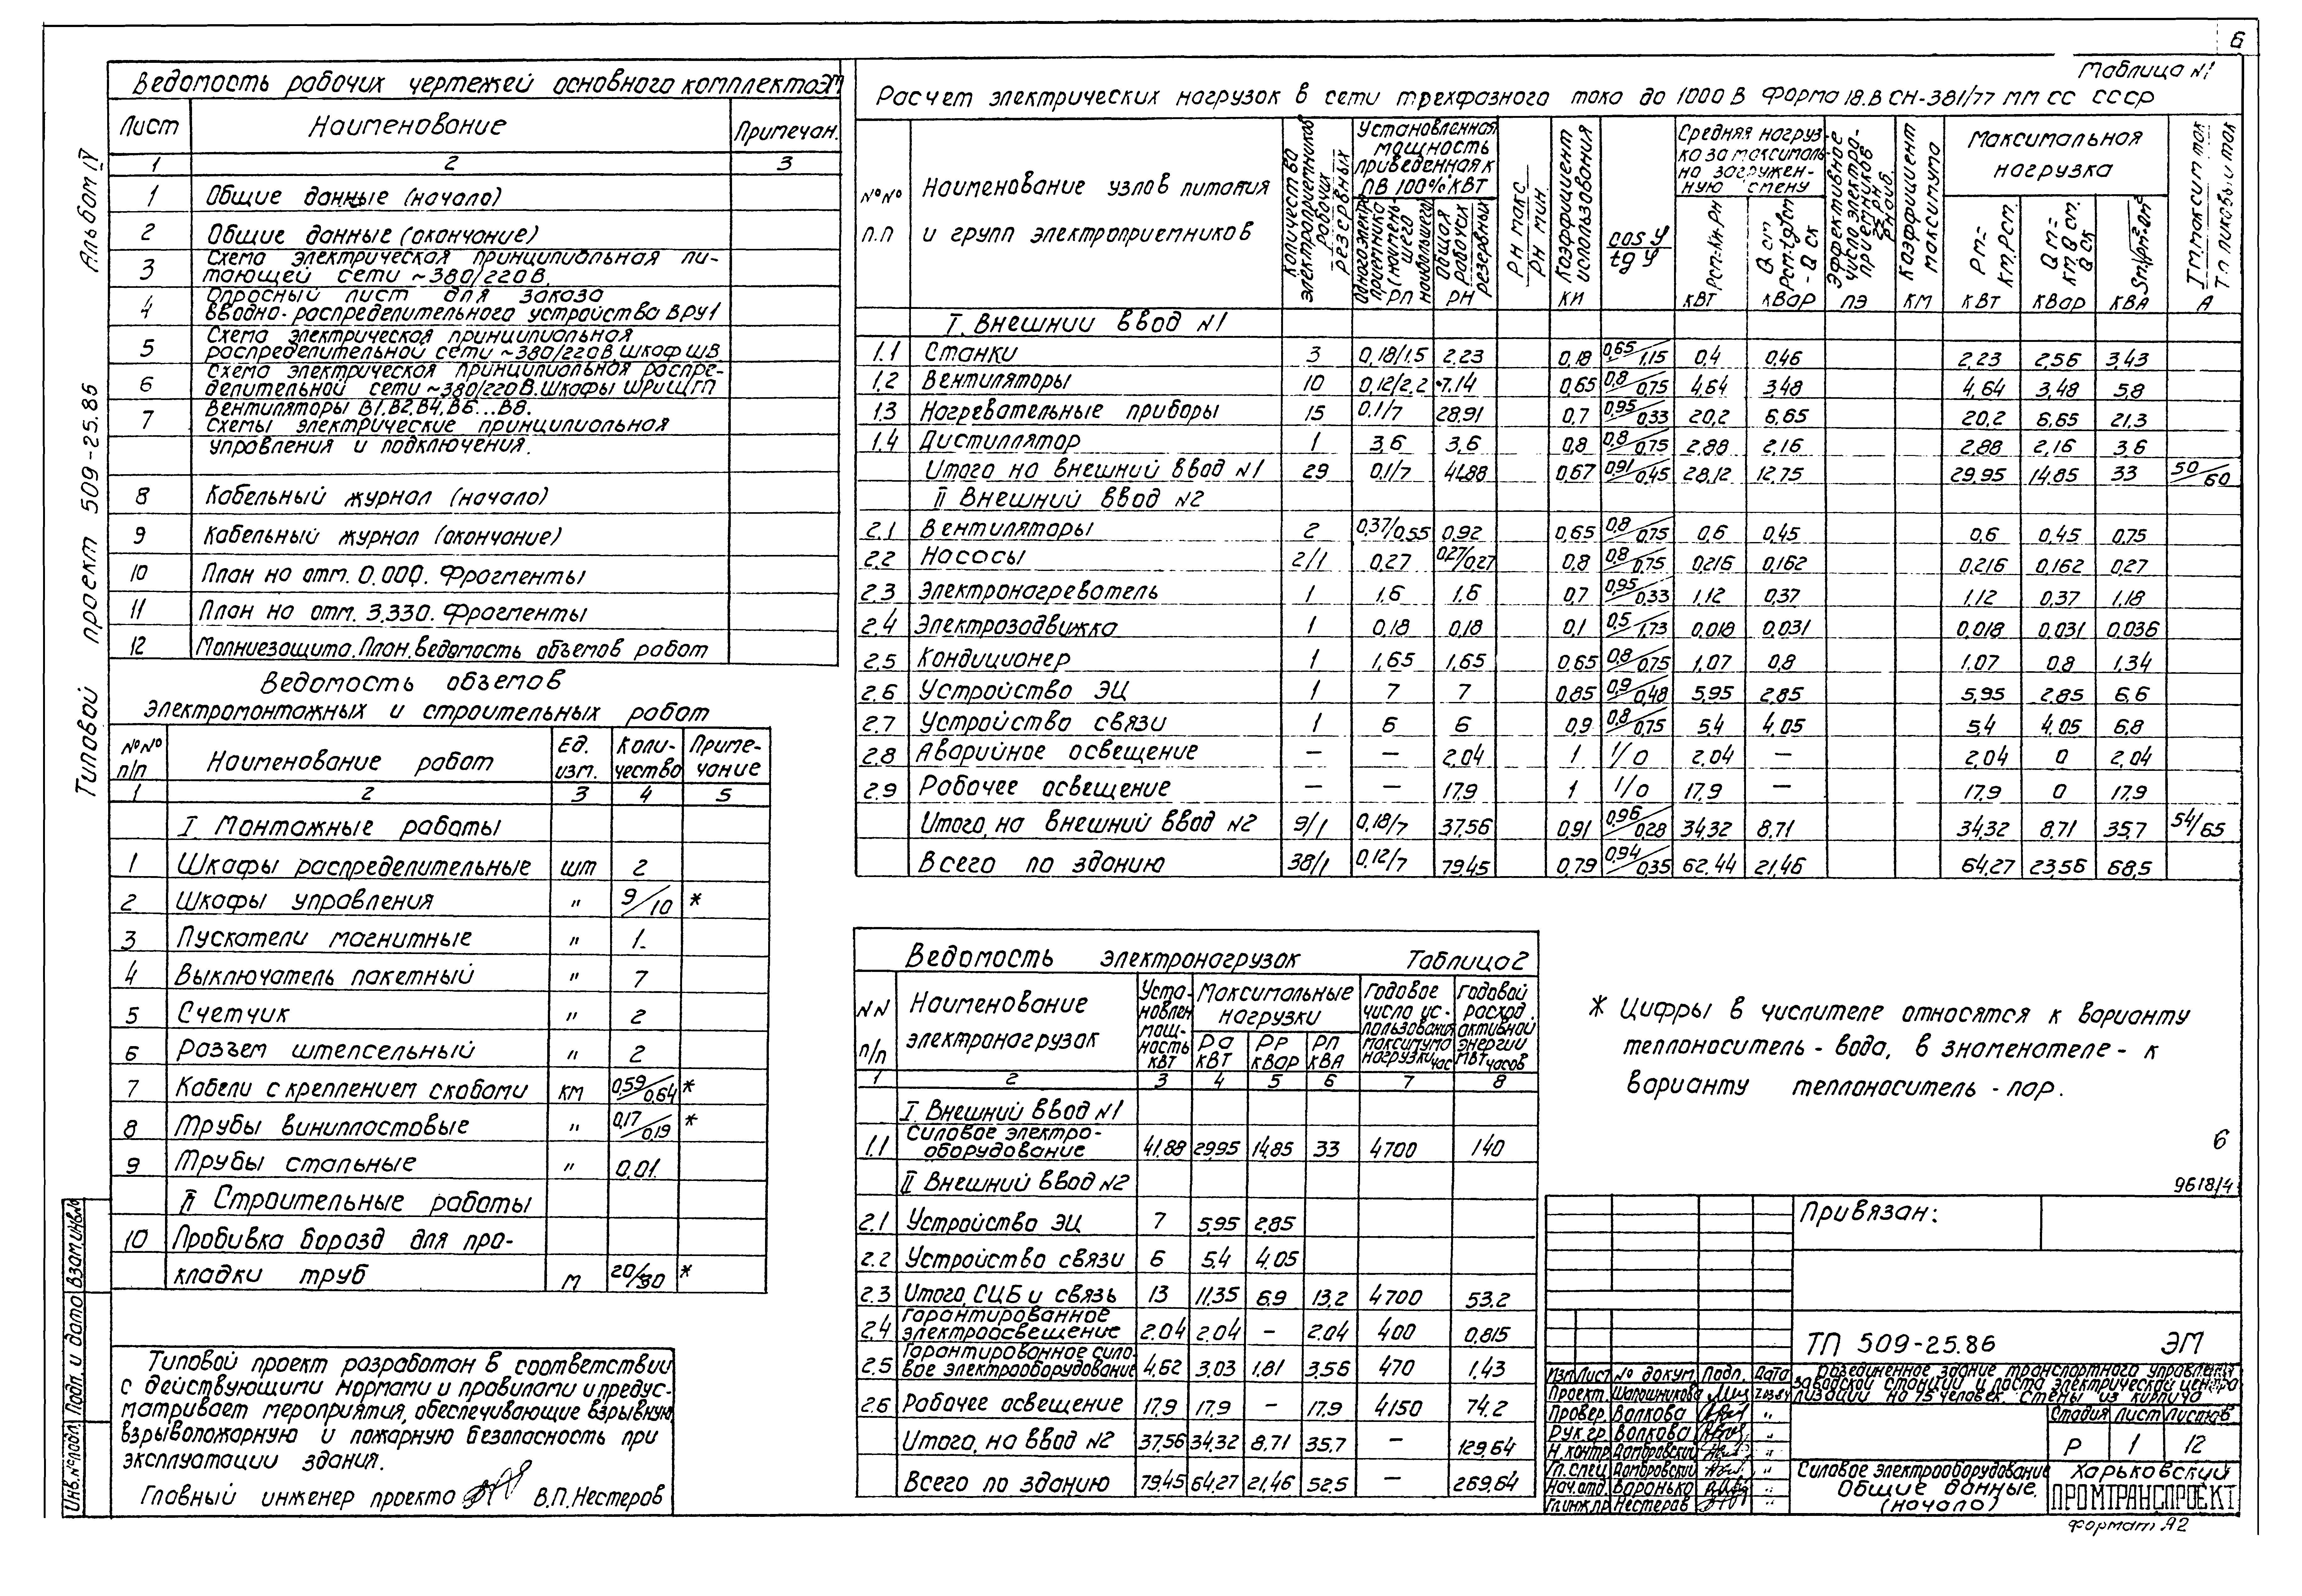 6
Альбом IV
Типовой проект 509-25.86
Ведомость рабочих чертежей основного комплекта ЭМ
Лист Наименование Примечан.
1 2 3
1 Общие данные (начало)
2 Общие данные (окончание)
3 Схема электрическая принципиальная пи-
тающей сети ~380/220В.
4 Опросный лист для заказа
вводно-распределительного устройства ВРУ1
5 Схема электрическая принципиальная
распределительной сети ~380/220В, шкаф ШВ
6 Схема электрическая принципиальная распре-
делительной сети ~380/220В. Шкафы
7 Вентиляторы В1, В2, В4, В6...В8.
Схемы электрические принципиальная
управления и подключения.
8 Кабельный журнал (начало)
9 Кабельный журнал (окончание)
10 План на отм. 0.000. Фрагменты
11 План на отм. 3.330. Фрагменты
12 Молниезащита. План. Ведомость объемов работ
Ведомость объемов
электромонтажных и строительных работ
№№ п/п Наименование работ Ед. изм. Коли-чество Приме-чание
1 2 3 4 5
I Монтажные работы
1 Шкафы распределительные шт 2
2 Шкафы управления " 9/10 *
3 Пускатели магнитные " 1.
4 Выключатель пакетный " 7
5 Счетчик " 2
6 Разъем штепсельный " 2
7 Кабели с креплением скобами км 0,59/0,64 *
8 Трубы винипластовые " 0,17/0,19 *
9 Трубы стальные " 0,01.
II Строительные работы
10 Пробивка борозд для про-
кладки труб м 20/30 *
Типовой проект разработан в соответствии
с действующими нормами и правилами и предус-
матривает мероприятия, обеспечивающие взрывную,
взрывопожарную и пожарную безопасность при
эксплуатации здания.
Главный инженер проекта В.П.Нестеров
Инв.№подл. Подп. и дата Взам.инв.№
Таблица №1
Расчет электрических нагрузок в сети трехфазного тока до 1000 В Форма 18. ВСН-381/77 ММ СС СССР
№№ п.п
Наименование узлов питания
и групп электроприемников
Количество электроприемников рабочих резервных
Установленная мощность приведенная к ПВ 100% кВт
Одного электроприемника (наименьшего наибольшего) Рп
Общая рабочих резервных Рн
Рн макс Рн мин.
Коэффициент использования Ки
cos φ
tg φ
Средняя нагруз-
ка за максималь-
но загружен-
ную смену
Рсм=Ки·Рн кВт
Qсм Рсм·tgφсм - Qск кВар
Эффективное число электро-приемников пэ
Коэффициент максимума Км
Максимальная
нагрузка
Рм= Км.Рсм. кВт
Qм= Км.Qсм. Qск кВар
кВА
Iм максим ток
Iп пиковый ток
А
I. Внешний ввод №1
1.1 Станки 3 0,18/1,5 2.23 0,18 0,65/1,15 0,4 0,46 2,23 2,56 3,43
1.2 Вентиляторы 10 0,12/2,2 7.14 0,65 0,8/0,75 4,64 3,48 4,64 3,48 5,8
1.3 Нагревательные приборы 15 0.1/7 28,91 0,7 0,95/0,33 20,2 6,65 20,2 6,65 21,3
1.4 Дистиллятор 1 3,6 3,6 0,8 0,8/0,75 2,88 2,16 2,88 2,16 3,6
Итого на внешний ввод №1 29 0,1/7 41.88 0,67 0,91/0,45 28,12 12,75 29,95 14,85 33 50/60
II Внешний ввод №2
2.1 Вентиляторы 2 0,37/0,55 0,92 0,65 0,8/0,75 0,6 0,45 0,6 0,45 0,75
2.2 Насосы 2/1 0,27 0,27/0,27 0,8 0,8/0,75 0,216 0,162 0,216 0,162 0,27
2.3 Электронагреватель 1 1,6 1,6 0,7 0,95/0,33 1,12 0,37 1,12 0,37 1,18
2.4 Электрозадвижка 1 0,18 0,18 0,1 0,5/1,73 0,018 0,031 0,018 0,031 0,036
2.5 Кондиционер 1 1,65 1,65 0,65 0,8/0,75 1,07 0,8 1,07 0,8 1,34
2.6 Устройство ЭЦ 1 7 7 0,85 0,9/0,48 5,95 2,85 5,95 2,85 6,6
2.7 Устройство связи 1 6 6 0,9 0,8/0,75 5,4 4,05 5,4 4,05 6,8
2.8 Аварийное освещение — — 2,04 1 1/0 2,04 — 2,04 0 2,04
2.9 Рабочее освещение — — 17,9 1 1/0 17,9 — 17,9 0 17,9
Итого, на внешний ввод №2 9/1 0,18/7 37,56 0,91 0,96/0,28 34,32 8,71 34,32 8,71 35,7 54/65
Всего по зданию 38/1 0,12/7 79,45 0,79 0,94/0,35 62.44 21,46 64,27 23,56 68,5
Ведомость электронагрузок Таблица 2
NN п/п
Наименование
электронагрузок
Уста-новлен мощ-ность кВт
Максимальные нагрузки
Ра кВт Рр кВар Рп кВА
Годовое число ис-пользования максимума нагрузки час
Годовой расход активной энергии МВт часов
1 2 3 4 5 6 7 8
I. Внешний ввод №1
1.1 Силовое электро-
оборудование 41,88 29,95 14,85 33 4700 140
II Внешний ввод №2
2.1 Устройство ЭЦ 7 5,95 2,85
2.2 Устройство связи 6 5,4 4,05
2.3 Итого, СЦБ и связь 13 11,35 6,9 13,2 4700 53.2
2.4 Гарантированное
электроосвещение 2.04 2.04 — 2.04 400 0,815
2.5 Гарантированное сило-
вое электрооборудование 4,62 3,03 1,81 3,56 470 1,43
2.6 Рабочее освещение 17,9 17,9 — 17,9 4150 74,2
Итого, на ввод №2 37,56 34,32 8,71 35,7 — 129,64
Всего по зданию 79,45 64,27 21,46 52,5 — 269,64
* Цифры в числителе относятся к варианту
теплоноситель - вода, в знаменателе - к
варианту теплоноситель - пар.
6
9618/4
Привязан:
ТП 509-25.86 ЭМ
Изм Лист № докум Подп. Дата
Проект. Шапошникова
Провер. Волкова "
Рук.гр. Волкова "
Н.контр. Домбровский "
Гл.спец. Домбровский "
Нач.отд. Воронько "
Гл.инж.пр. Нестеров "
здание транспортного управления
заводской станции и поста электрической центра
лизации на 15 человек. Стены из кирпича
Стадия Лист Листов
Р 1 12
Силовое электрооборудование
Общие данные.
(начало)
Харьковский
ПРОМТРАНСПРОЕКТ
Формат А2